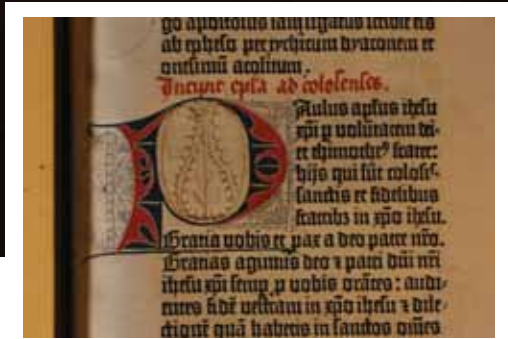 go apostolus iam ligatus scribit eis
ab epheso per tychicum dyaconem et
onesimū acolitum.
Incipit epl̄a ad colosenses.
Paulus apl̄us ihesu
xp̄i p̲ volūtatem dei-
et thimothe⁹ frater:
hijs qui sūt coloss̄.
sanctis et fidelibus
fratribꝫ in xp̄o ihesu.
Gratia vobis et pax a deo patre nr̄o.
Gratias agimus deo ⁊ patri dn̄i nr̄i
ihesu xp̄i semp̲ p̱ vobis orātes: audi-
entes fidē vestram in xp̄o ihesu ⁊ dile-
ctionē quā habetis in sanctos om̄es